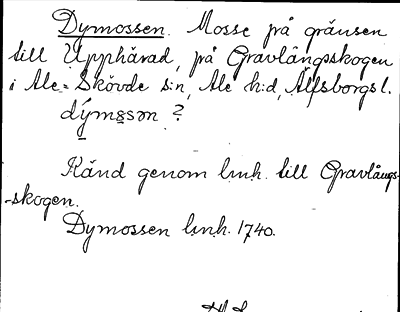 Dymossen. Mosse på gränsen
till Upphärad, på Gravlångsskogen
i Ale-Skövde s:n, Ale h:d, Älfsborgs l.
dýmåsən ?
Känd genom lmh. till Gravlångs-
-skogen.
Dymossen lmh. 1740.